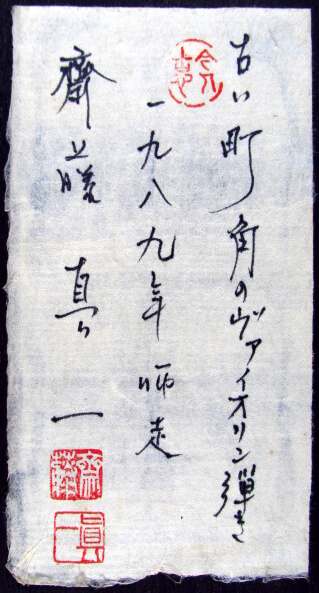 古い町角のヴァイオリン弾き
一九八九年師走
齋藤真一
齋藤
眞一